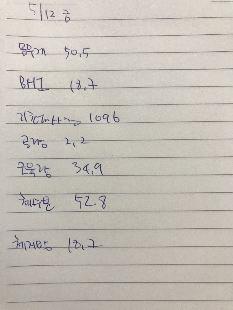 5/12 금
몸무게 50.5
BMI 18.7
기초대사량 1096
골량 2.2
근육량 34.9
체수분 52.8
체지방 18.7